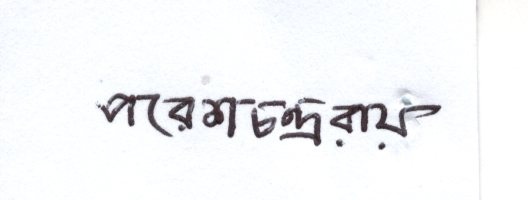 পরেশচন্দ্ররায়